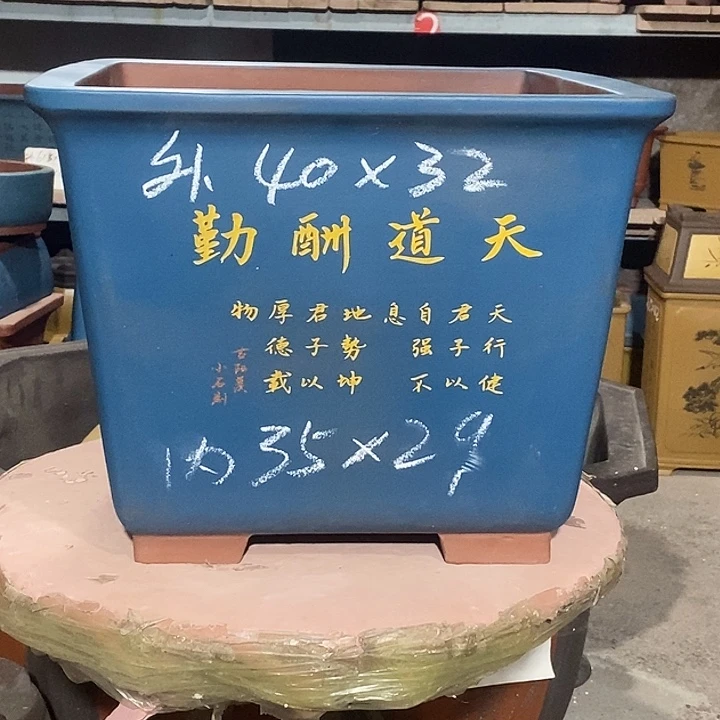 外 40×32
天道酬勤
天行健
君子以
自强不
息
地勢坤
君子以
厚德載
物
古阳羡
小石刻
内 35×29